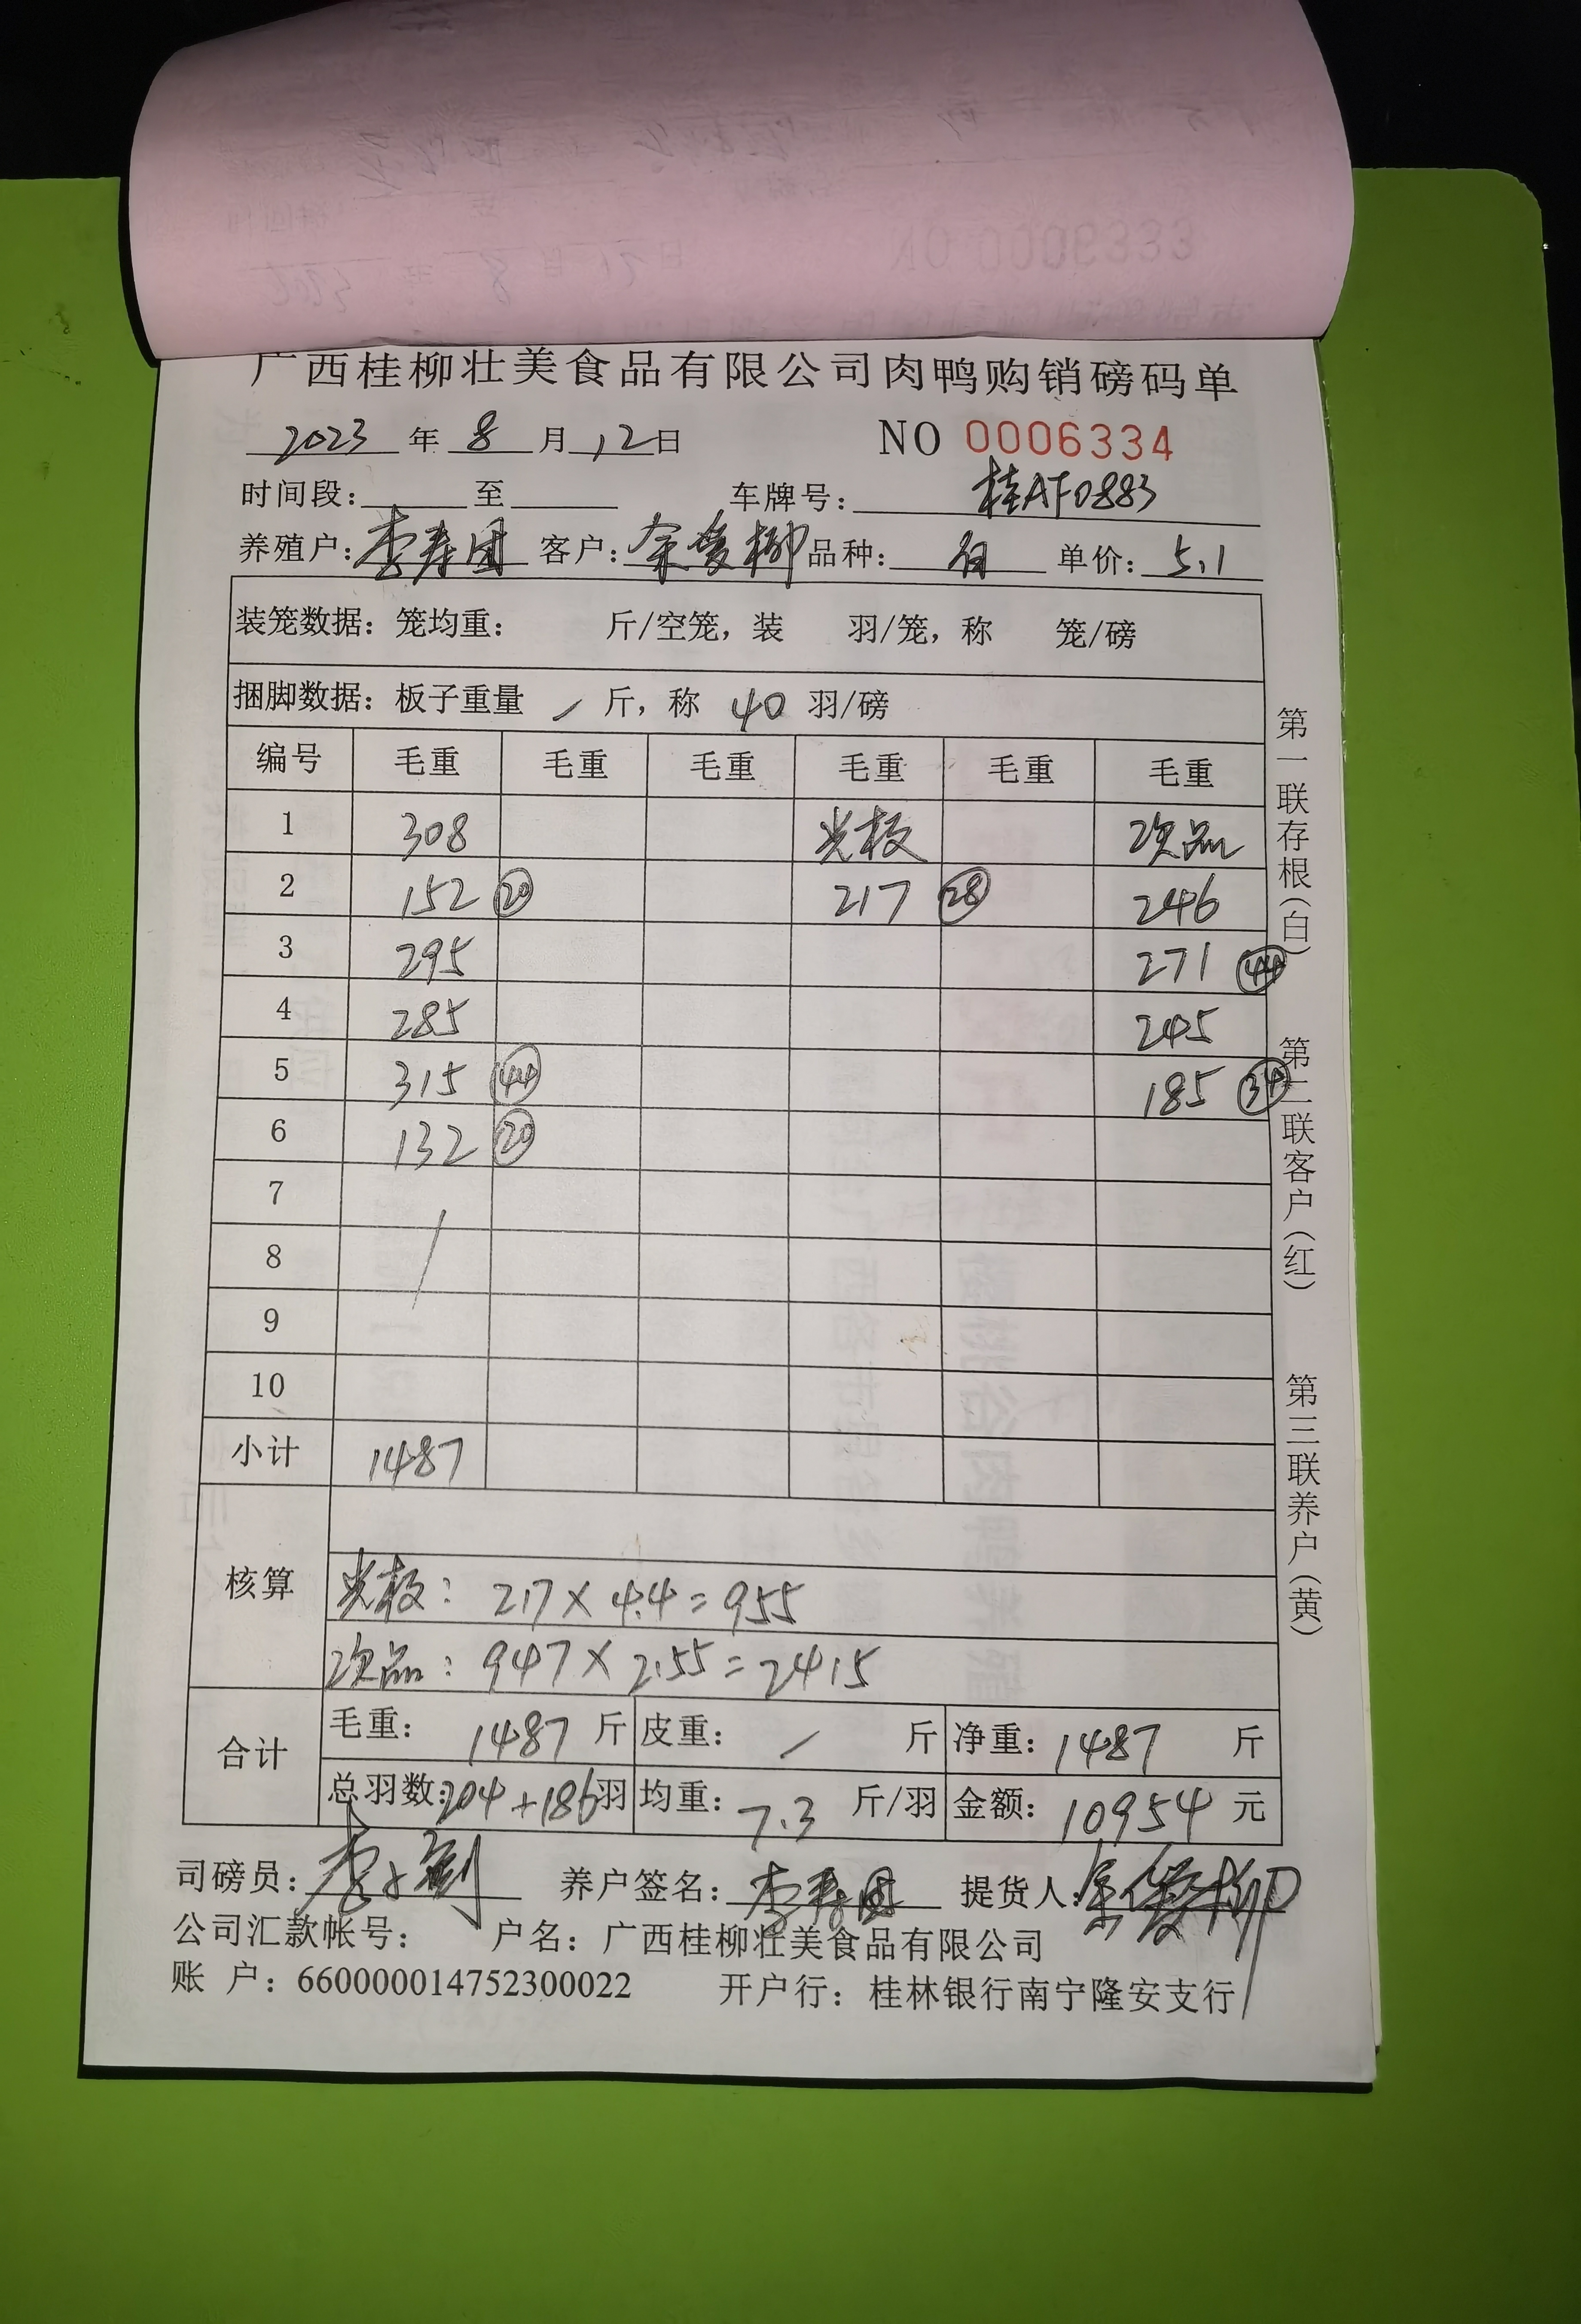 广西桂柳壮美食品有限公司肉鸭购销磅码单
2023 年 8 月 12 日 NO 0006334
时间段: 至 车牌号: 桂AF0883
养殖户: 李寿团 客户: 余爱柳 品种: 白 单价: 5.1
装笼数据: 笼均重: 斤/空笼, 装 羽/笼, 称 笼/磅
捆脚数据: 板子重量 / 斤, 称 40 羽/磅
编号 毛重 毛重 毛重 毛重 毛重 毛重
1 308 光板 次品
2 152 ⑳ 217 ㉘ 246
3 295 271 ㊹
4 285 245
5 315 ㊹ 185 ㉞
6 132 ⑳
7
8 /
9
10
小计 1487
核算
光板: 217 × 4.4 = 955
次品: 947 × 2.55 = 2415
合计
毛重: 1487 斤 皮重: / 斤 净重: 1487 斤
总羽数: 204+186 羽 均重: 7.3 斤/羽 金额: 10954 元
司磅员: 养户签名: 李寿团 提货人: 柳
公司汇款帐号: 户名: 广西桂柳壮美食品有限公司
账 户: 660000014752300022 开户行: 桂林银行南宁隆安支行
第一联存根(白)
第二联客户(红)
第三联养户(黄)